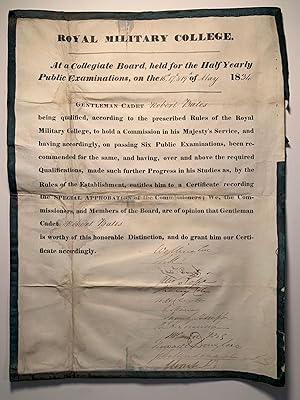 ROYAL MILITARY COLLEGE.
At a Collegiate Board, held for the Half Yearly
Public Examinations, on the of May 1834
GENTLEMAN CADET Robert Bates
being qualified, according to the prescribed Rules of the Royal
Military College, to hold a Commission in his Majesty's Service, and
having accordingly, on passing Six Public Examinations, been re-
commended for the same, and having, over and above the required
Qualifications, made such further Progress in his Studies as, by the
Rules of the Establishment, entitles him to a Certificate recording
the SPECIAL APPROBATION of the Commissioners; We, the Com-
missioners, and Members of the Board, are of opinion that Gentleman
Cadet Robert Bates
is worthy of this honorable Distinction, and do grant him our Certi-
ficate accordingly.